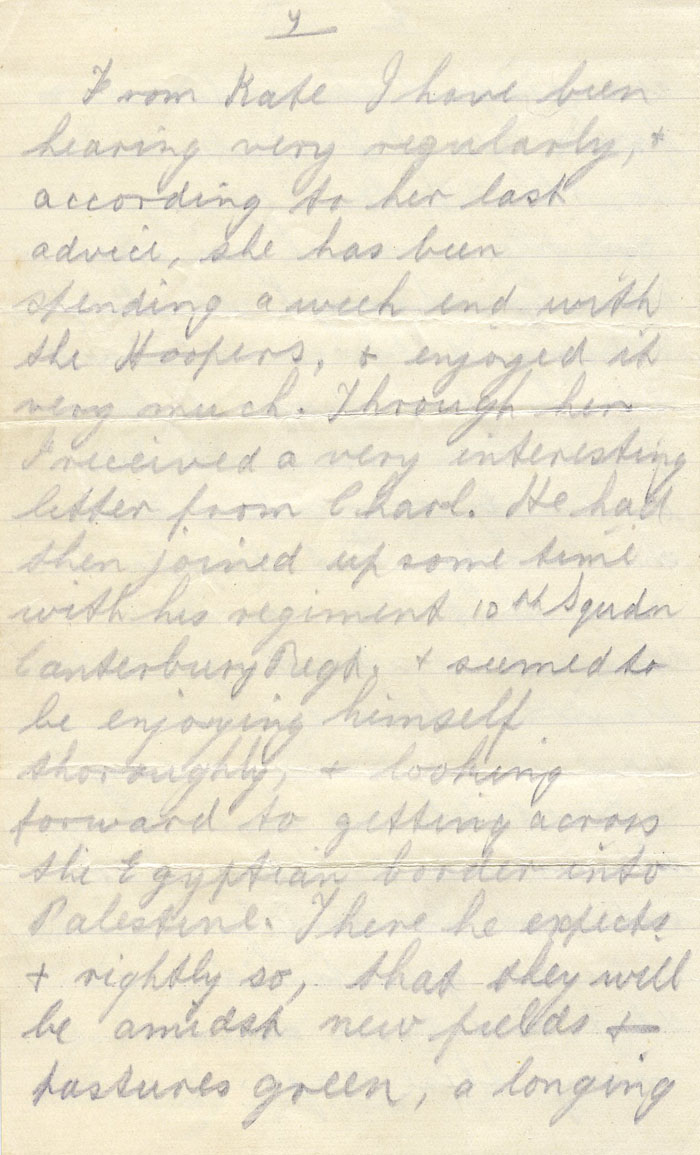 From Kate I have been
hearing very regularly, +
according to her last
advice, she has been
spending a week end with
the Hoopers, + enjoyed it
very much. Through her
I received a very interesting
letter from Charl. He had
then joined up some time
with his regiment 10th Squdn
Canterbury Regt. + seemed to
be enjoying himself
thoroughly, + looking
forward to getting across
the Egyptian border into
Palestine. There he expects
+ rightly so, that they will
be amidst new fields +
pastures green, a longing